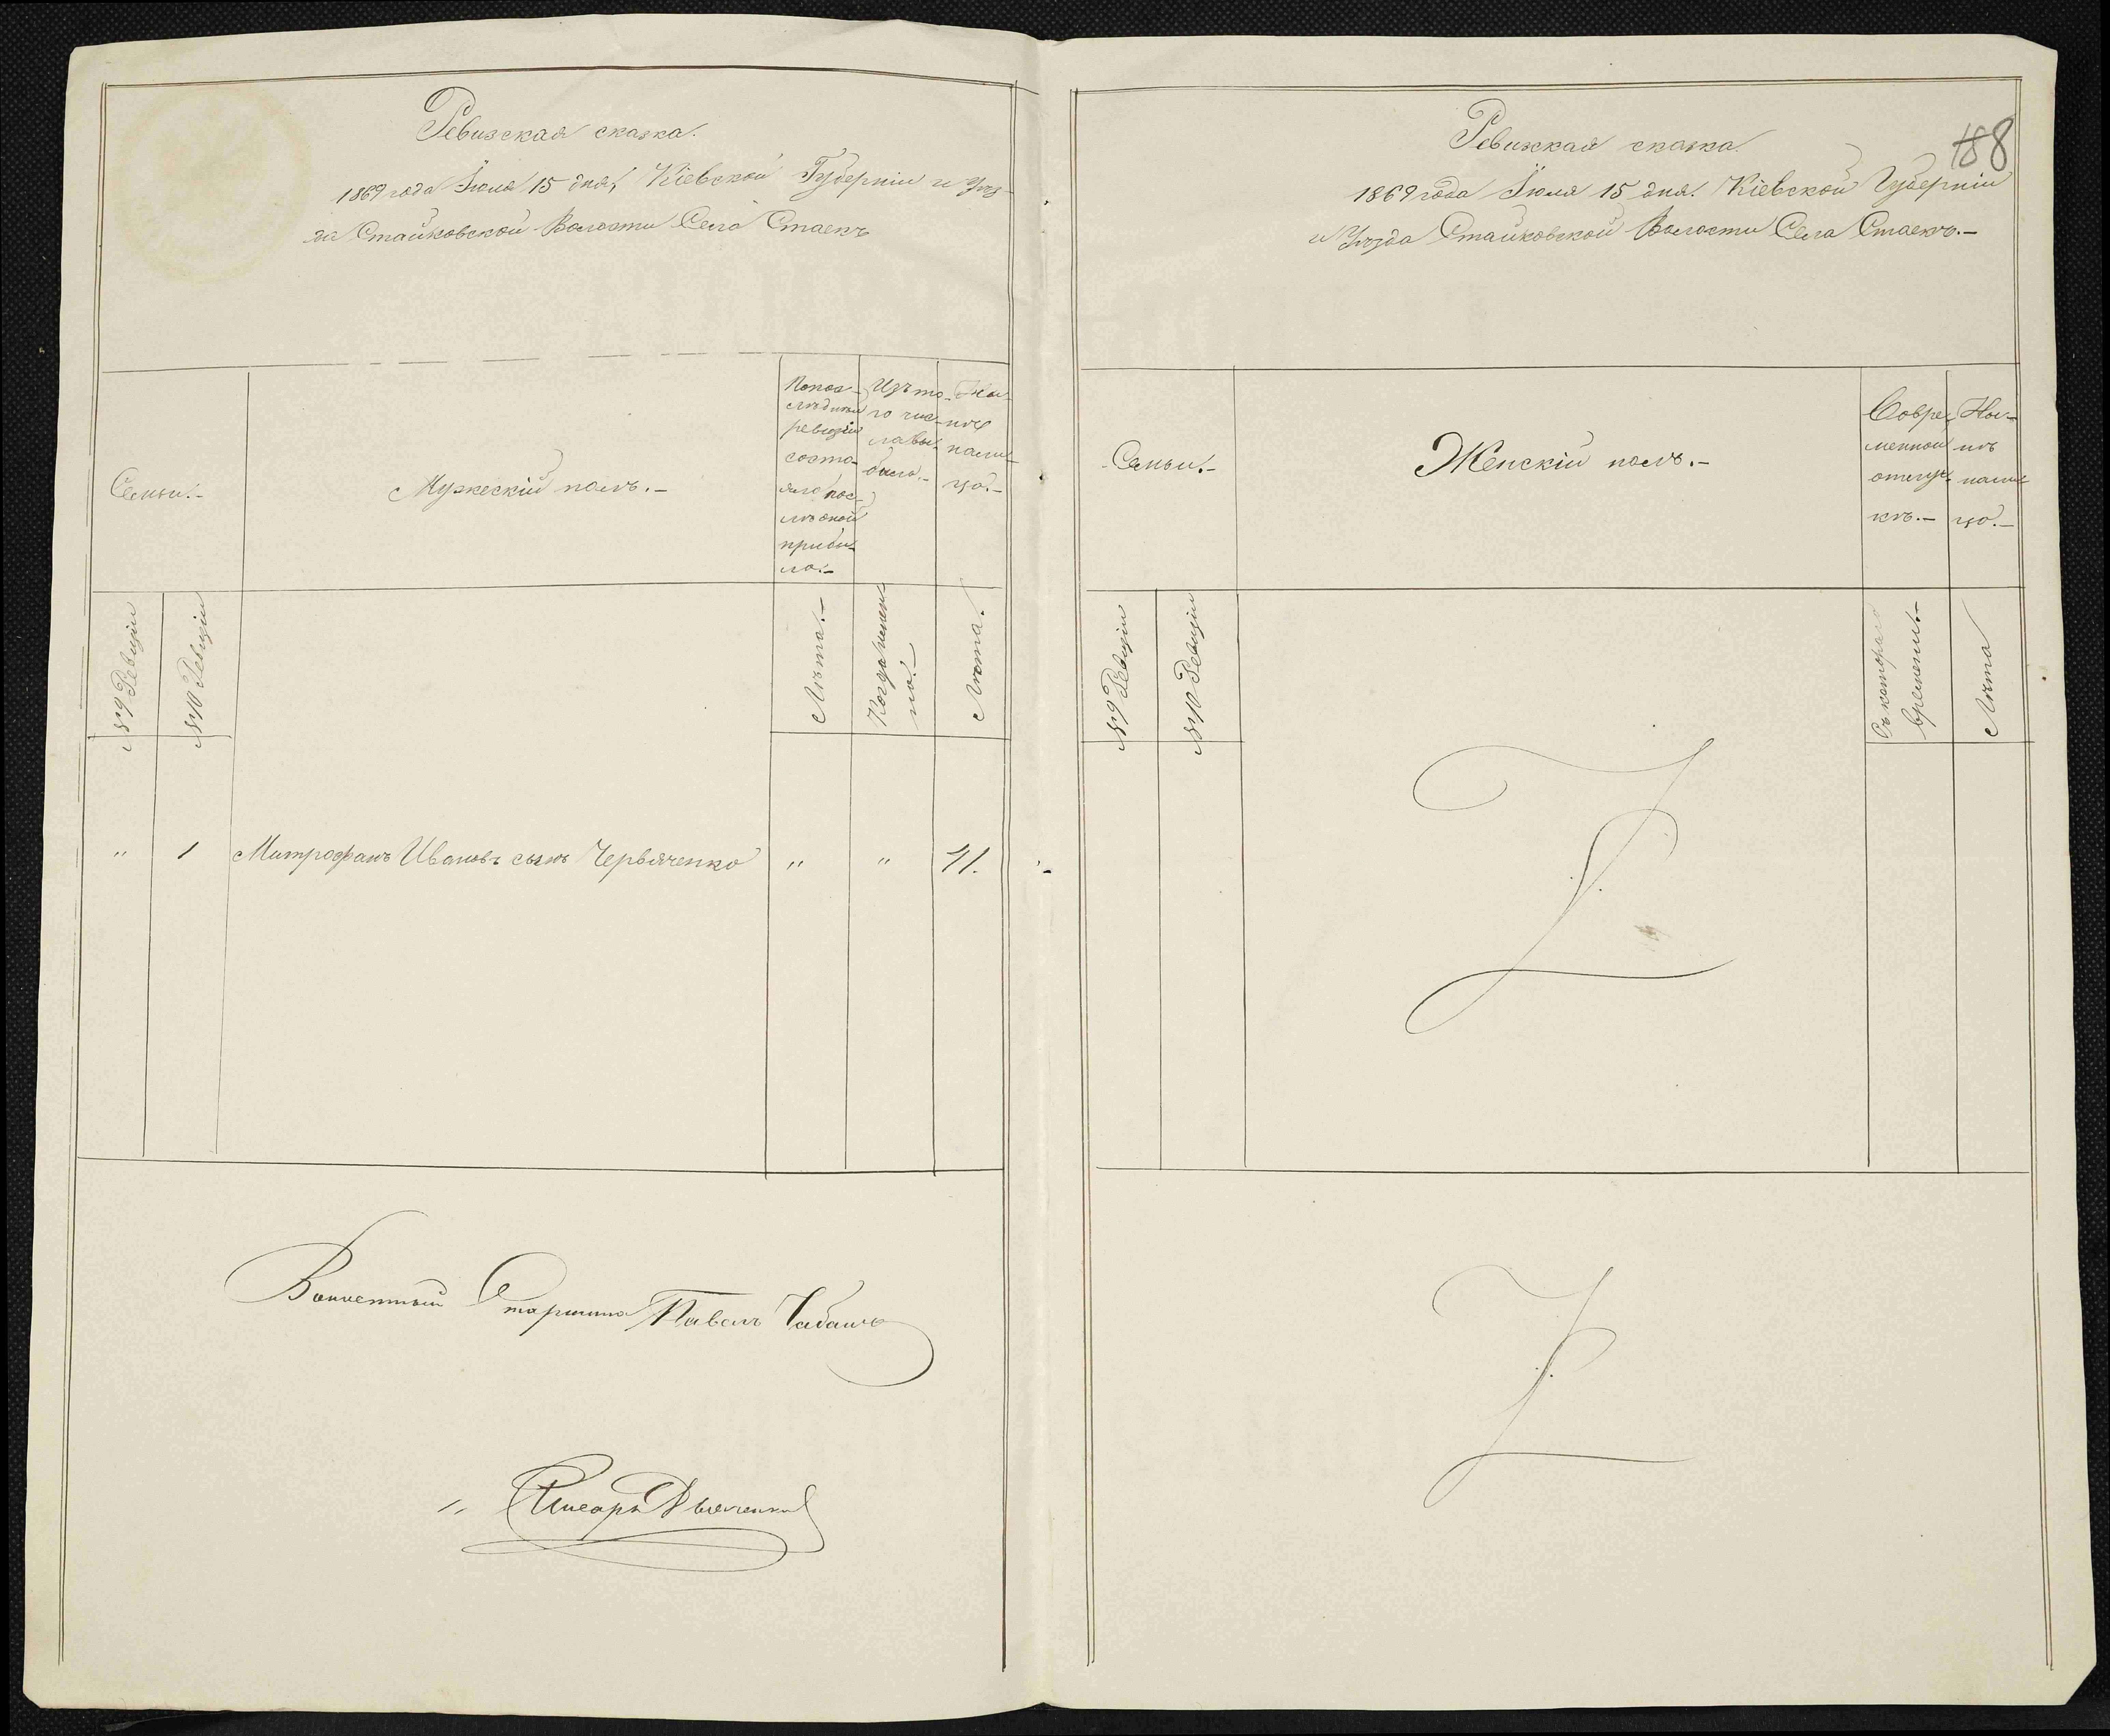 Ревизская сказка.
1869 года Іюля 15 дня, Кіевской Губерніи и Уѣз-
да Стайковской Волости Села Стаекъ
Семьи.-
Мужескій полъ.-
По пос-
лѣднѣй
ревизіи
состо-
яло пос-
лѣ оной
прибы-
ло.-
Изъ то-
го чис-
ла вы-
было.-
Ны-
нѣ
налич-
цо.-
№ 9 Ревизіи
№ 10 Ревизіи
Лѣта.-
Когда именно.-
Лѣта.
" 1 Митрофанъ Ивановъ сынъ Червяченко " " 41.
Волостный Старшина Павелъ Чабанъ
" Писарь Дяченко
188
Ревизкая сказка.
1869 года Іюля 15 дня. Кіевской Губерніи
и Уѣзда Стайковской Волости Села Стаекъ.-
Семьи.-
Женскій полъ.-
Во вре-
менной
отлуч-
кѣ.-
Ны-
нѣ
налич-
цо.-
№ 9 Ревизіи
№ 10 Ревизіи
Съ котораго
времени.-
Лѣта